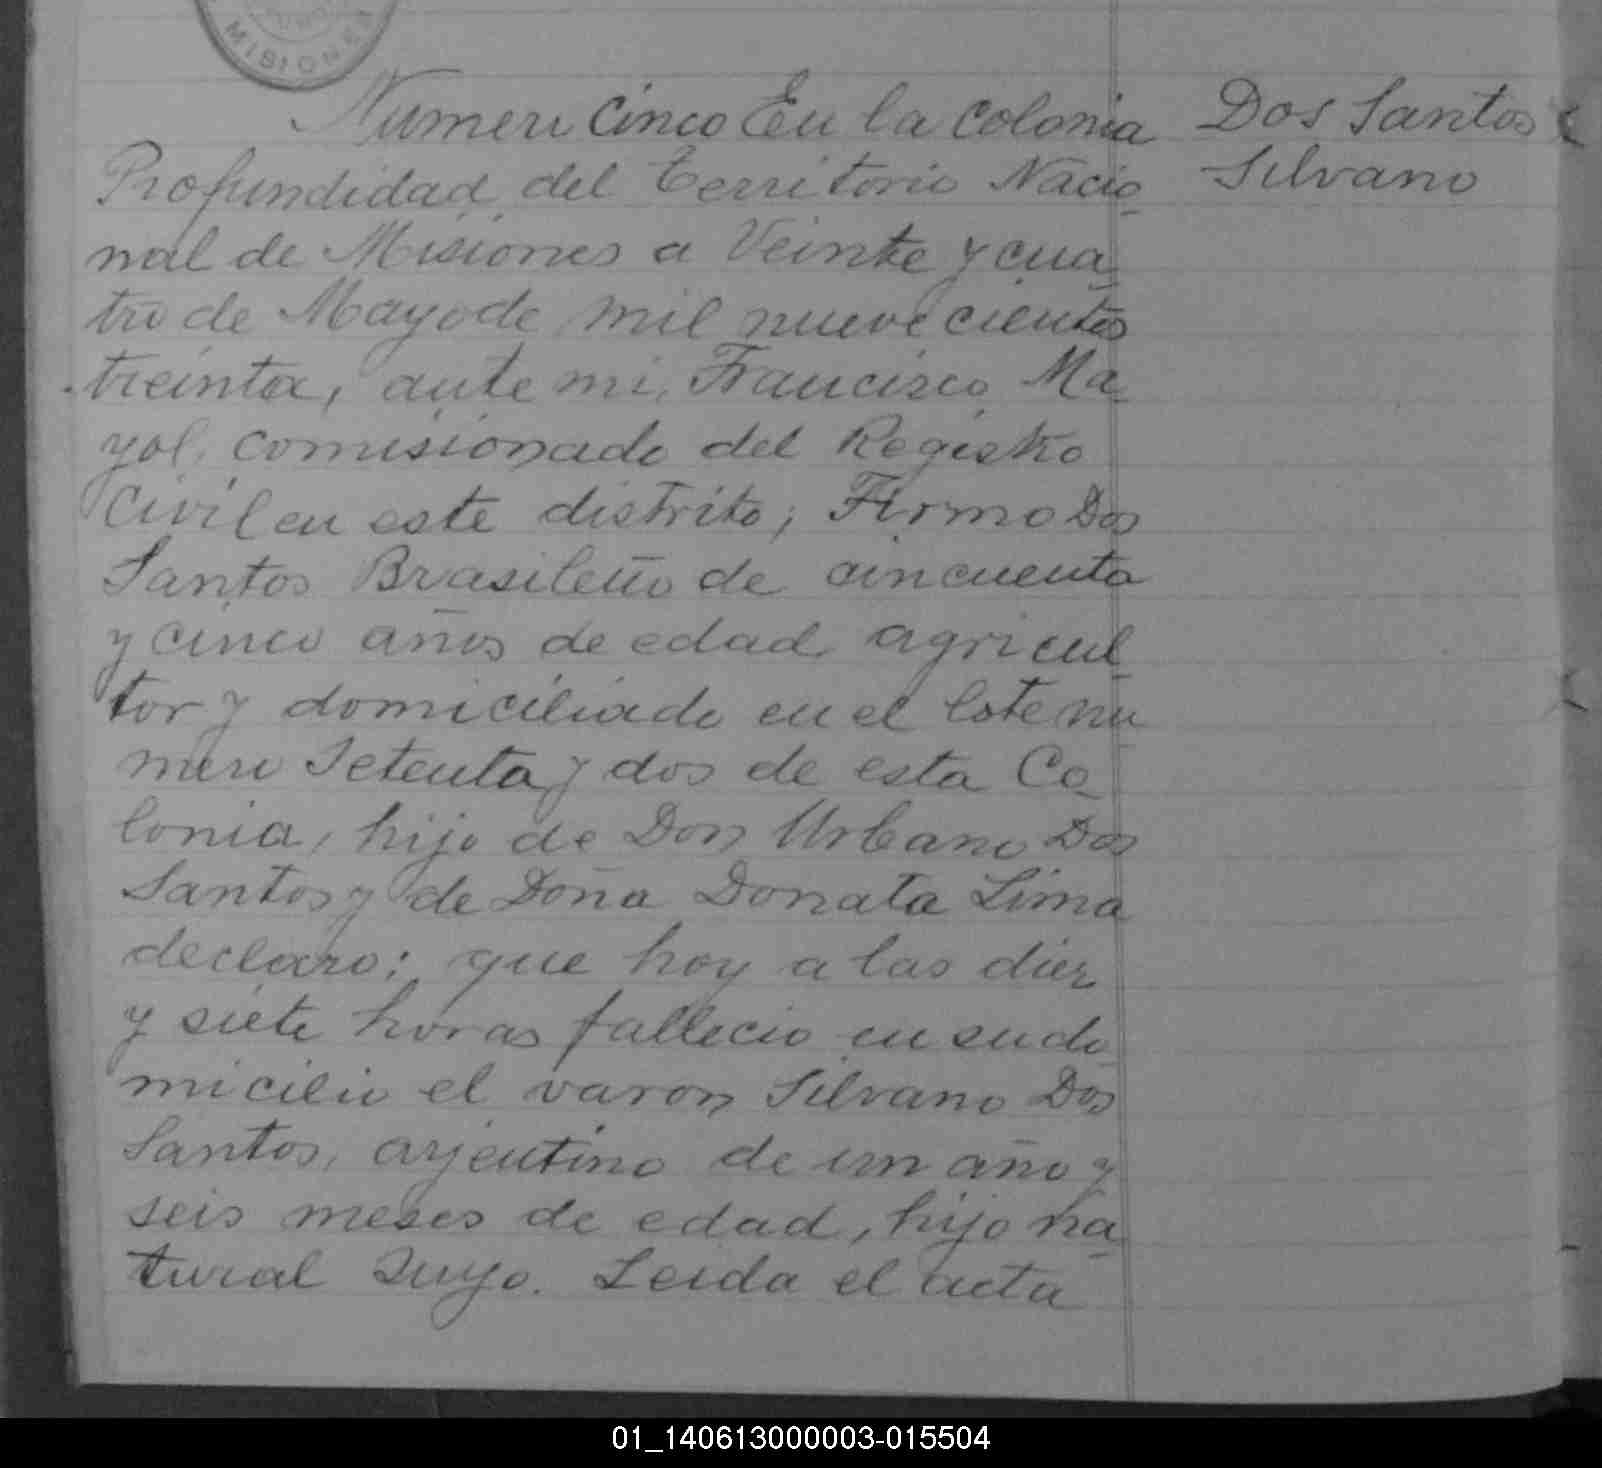 MISIONES
Numero cinco En la colonia
Profundidad del Territorio Nacio
nal de Misiones a Veinte y cua
tro de Mayo de mil nuevecientos
treinta, ante mi, Francisco Ma
yol, comisionado del Registro
Civil en este distrito; Firmo Dos
Santos Brasileño de cincuenta
y cinco años de edad agricul
tor y domiciliado en el lote nu
mero Setenta y dos de esta Co
lonia, hijo de Don Urbano Dos
Santos y de Doña Donata Lima
declaro: que hoy a las diez
y siete horas fallecio en su do
micilio el varon Silvano Dos
Santos, arjentino de un año y
seis meses de edad, hijo na
tural Suyo. Leida el acta
Dos Santos
Silvano
01_140613000003-015504